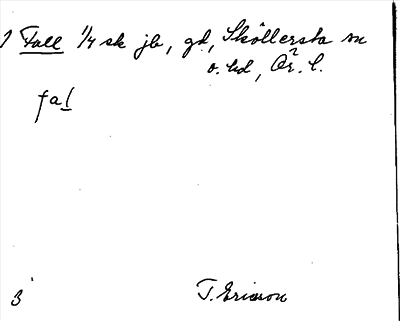 1 Fall 1/4 sk jb, gd, Sköllersta sn
o. hd, Ör. l.
fal
3
T. Ericson